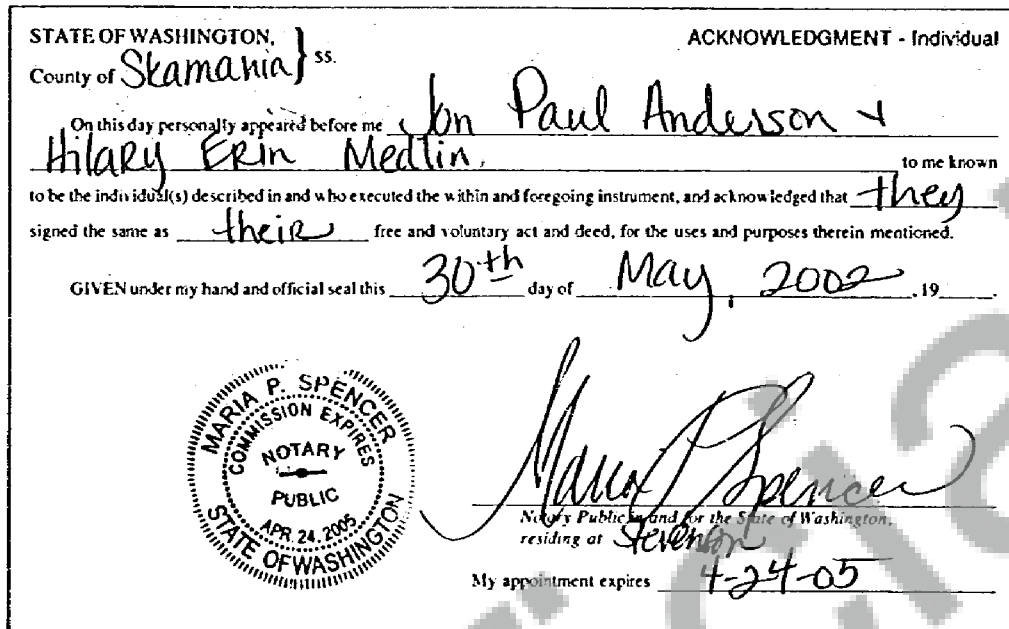 STATE OF WASHINGTON,
County of Skamania } ss.
ACKNOWLEDGMENT - Individual
On this day personally appeared before me Jon Paul Anderson +
Hilary Erin Medlin, to me known
to be the individual(s) described in and who executed the within and foregoing instrument, and acknowledged that they
signed the same as their free and voluntary act and deed, for the uses and purposes therein mentioned.
GIVEN under my hand and official seal this 30th day of May, 2002, 19 .
MARIA P. SPENCER
COMMISSION EXPIRES
NOTARY
PUBLIC
APR 24, 2005
STATE OF WASHINGTON
Maria P Spencer
Notary Public in and for the State of Washington,
residing at Stevenson
My appointment expires 4-24-05